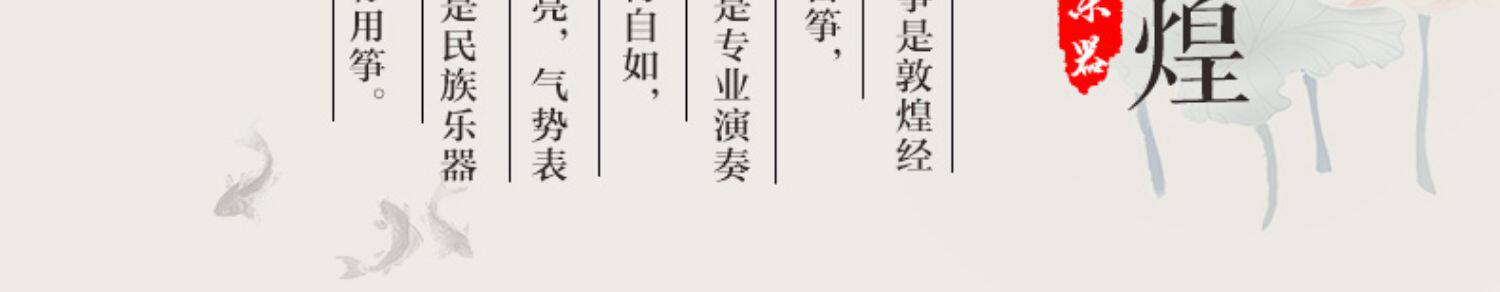 煌
乐器
筝是敦煌经
筝，
是专业演奏
自如，
亮，气势表
是民族乐器
用筝。